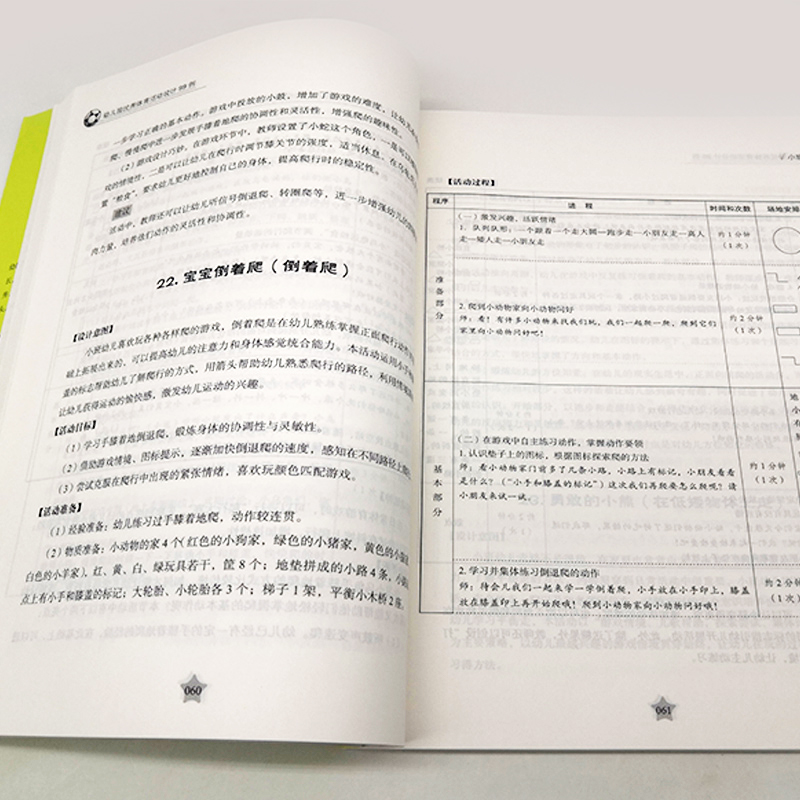 幼儿园优秀体育活动设计99例
一步学习正确的基本动作。游戏中投放的小鼓，增加了游戏的难度，让幼儿
爬、慢慢爬中进一步发展手膝着地爬的协调性和灵活性，增强爬的趣味性。
（2）游戏设计巧妙。在游戏环节中，教师设置了小蛇这个角色，一是可以
戏的情境性，二是可以让幼儿在爬行时调节膝关节的强度，适当休息。在
置“粮食”，要求幼儿更好地控制自己的身体，提高爬行时的稳定性。
建议
活动中，教师还可以让幼儿听信号倒退爬、转圈爬等，进一步增强幼儿的
肉力量，培养他们动作的灵活性和协调性。
22. 宝宝倒着爬（倒着爬）
【设计意图】
小班幼儿喜欢玩各种各样爬的游戏，倒着爬是在幼儿熟练掌握正面爬行动作
础上拓展出来的，可以提高幼儿的注意力和身体感觉统合能力。本活动运用小手
盖的标志帮助幼儿了解爬行的方式，用箭头帮助幼儿熟悉爬行的路径，利用
让幼儿获得运动的愉快感，激发幼儿运动的兴趣。
【活动目标】
（1）学习手膝着地倒退爬，锻炼身体的协调性与灵敏性。
（2）借助游戏情境、图标提示，逐渐加快倒退爬的速度，感知在不同路径上
（3）尝试克服在爬行中出现的紧张情绪，喜欢玩颜色匹配游戏。
【活动准备】
（1）经验准备：幼儿练习过手膝着地爬，动作较连贯。
（2）物质准备：小动物的家4个（红色的小狗家，绿色的小猪家，黄色的小
白色的小羊家）、红、黄、白、绿玩具若干，筐8个；地垫拼成的小路4条，小
点上有小手和膝盖的标记；大轮胎、小轮胎各3个；梯子1架，平衡小木桥2座
060
【活动过程】
程序 进 程 时间和次数 场地安排
（一）激发兴趣、活跃情绪
1. 队列队形：一个跟着一个走大圆—跑步走—小朋友走—高人
走—矮人走—小朋友走
约1分钟
（1次）
准备部分
2. 爬到小动物家向小动物问好
师：看！有许多小动物来找我们玩，我们一起爬一爬，爬到它们
家里向小动物问好吧！
约2分钟
（1次）
（二）在游戏中自主练习动作，掌握动作要领
1. 认识垫子上的图标，根据图标探索爬的方法
师：看小动物家门前多了几条小路，小路上有标记，小朋友看看
是什么？（“小手和膝盖的标记”）这次我们再爬要怎么爬呢？请
小朋友来试一试。
约1分钟
（1次）
基本部分
2. 学习并集体练习倒退爬的动作
师：待会儿我们一起来学一学倒着爬，小手放在小手印上，膝盖
放在膝盖印上再开始爬哦！爬到小动物家向小动物问好哦！
约2分钟
（1次）
061